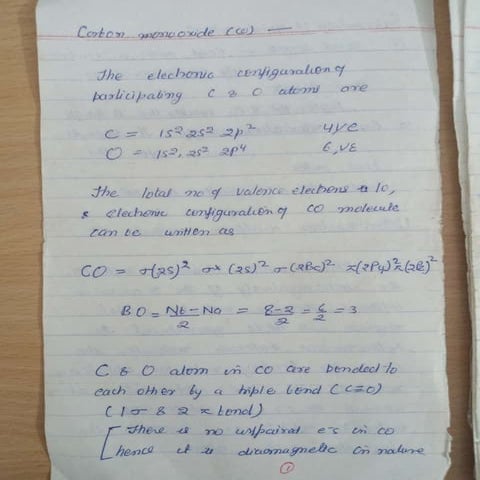 Carbon monooxide (co) —
The electronic configuration of
participating C & O atoms are
C = 1s² 2s² 2p² 4 VE
O = 1s², 2s² 2p⁴ 6, VE
The total no of valence electrons is 10,
& electronic configuration of CO molecule
can be written as
CO = σ(2s)² σ* (2s)² σ(2Px)² π(2Py)² π(2Pz)²
BO = Nb-Na/2 = 8-2/2 = 6/2 = 3
C & O atom in CO are bonded to
each other by a triple bond (C≡O)
(1 σ & 2 π bond)
[There is no unpaired e-s in CO
hence it is diamagnetic in nature
1